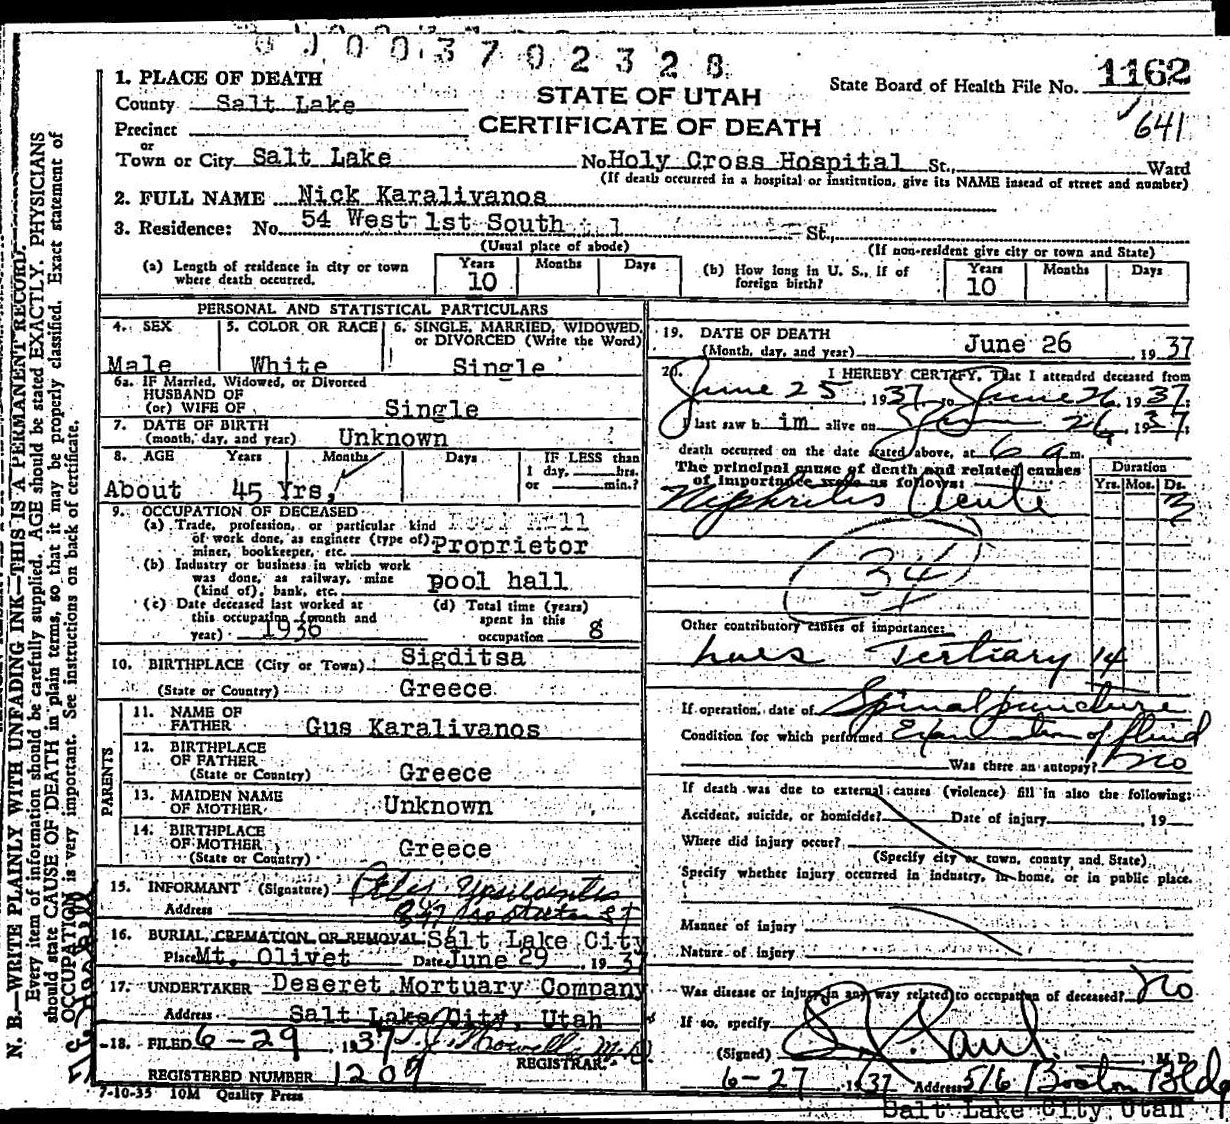 00003702328
1. PLACE OF DEATH
County Salt Lake
STATE OF UTAH
CERTIFICATE OF DEATH
State Board of Health File No. 1162
641
Precinct
or
Town or City Salt Lake No. Holy Cross Hospital St., Ward
(If death occurred in a hospital or institution, give its NAME instead of street and number)
2. FULL NAME Nick Karalivanos
3. Residence: No. 54 West 1st South St.,
(Usual place of abode) (If non-resident give city or town and State)
(a) Length of residence in city or town where death occurred. Years 10 Months Days
(b) How long in U. S., if of foreign birth? Years 10 Months Days
PERSONAL AND STATISTICAL PARTICULARS
4. SEX Male
5. COLOR OR RACE White
6. SINGLE, MARRIED, WIDOWED, or DIVORCED (Write the Word) Single
6a. IF Married, Widowed, or Divorced
HUSBAND OF
(or) WIFE OF Single
7. DATE OF BIRTH
(month, day, and year) Unknown
8. AGE Years Months Days IF LESS than
1 day, hrs.
or min.?
About 45 Yrs,
9. OCCUPATION OF DECEASED
(a) Trade, profession, or particular kind
of work done, as engineer (type of) Proprietor
miner, bookkeeper, etc.
(b) Industry or business in which work
was done, as railway, mine pool hall
(kind of), bank, etc.
(c) Date deceased last worked at
this occupation (month and
year) 1936
(d) Total time (years)
spent in this
occupation 8
10. BIRTHPLACE (City or Town) Sigditsa
(State or Country) Greece
PARENTS
11. NAME OF
FATHER Gus Karalivanos
12. BIRTHPLACE
OF FATHER
(State or Country) Greece
13. MAIDEN NAME
OF MOTHER Unknown
14. BIRTHPLACE
OF MOTHER
(State or Country) Greece
15. INFORMANT (Signature)
Address
16. BURIAL, CREMATION OR REMOVAL Salt Lake City
Place Mt. Olivet Date June 29, 1937
17. UNDERTAKER Deseret Mortuary Company
Address Salt Lake City, Utah
18. FILED 6-29, 1937
REGISTRAR.
REGISTERED NUMBER 1209
7-10-35 10M Quality Press
19. DATE OF DEATH
(Month, day, and year) June 26, 1937
20. I HEREBY CERTIFY, That I attended deceased from
June 25, 1937, to June 26, 1937.
I last saw him alive on June 26, 1937;
death occurred on the date stated above, at 6 a m.
The principal cause of death and related causes
of importance were as follows:
Duration
Yrs. Mos. Ds.
Nephritis Acute 3
34
Other contributory causes of importance:
Lues Tertiary 14
If operation, date of Spinal puncture
Condition for which performed Examination of fluid
Was there an autopsy? No
If death was due to external causes (violence) fill in also the following:
Accident, suicide, or homicide? Date of injury 19
Where did injury occur?
(Specify city or town, county and State)
Specify whether injury occurred in industry, in home, or in public place.
Manner of injury
Nature of injury
Was disease or injury in any way related to occupation of deceased? No
If so, specify
(Signed) M.D.
6-27, 1937 Address 516 Boston Bldg
Salt Lake City, Utah
N. B.—WRITE PLAINLY WITH UNFADING INK—THIS IS A PERMANENT RECORD.
Every item of information should be carefully supplied. AGE should be stated EXACTLY. PHYSICIANS
should state CAUSE OF DEATH in plain terms, so that it may be properly classified. Exact statement of
OCCUPATION is very important. See instructions on back of certificate.